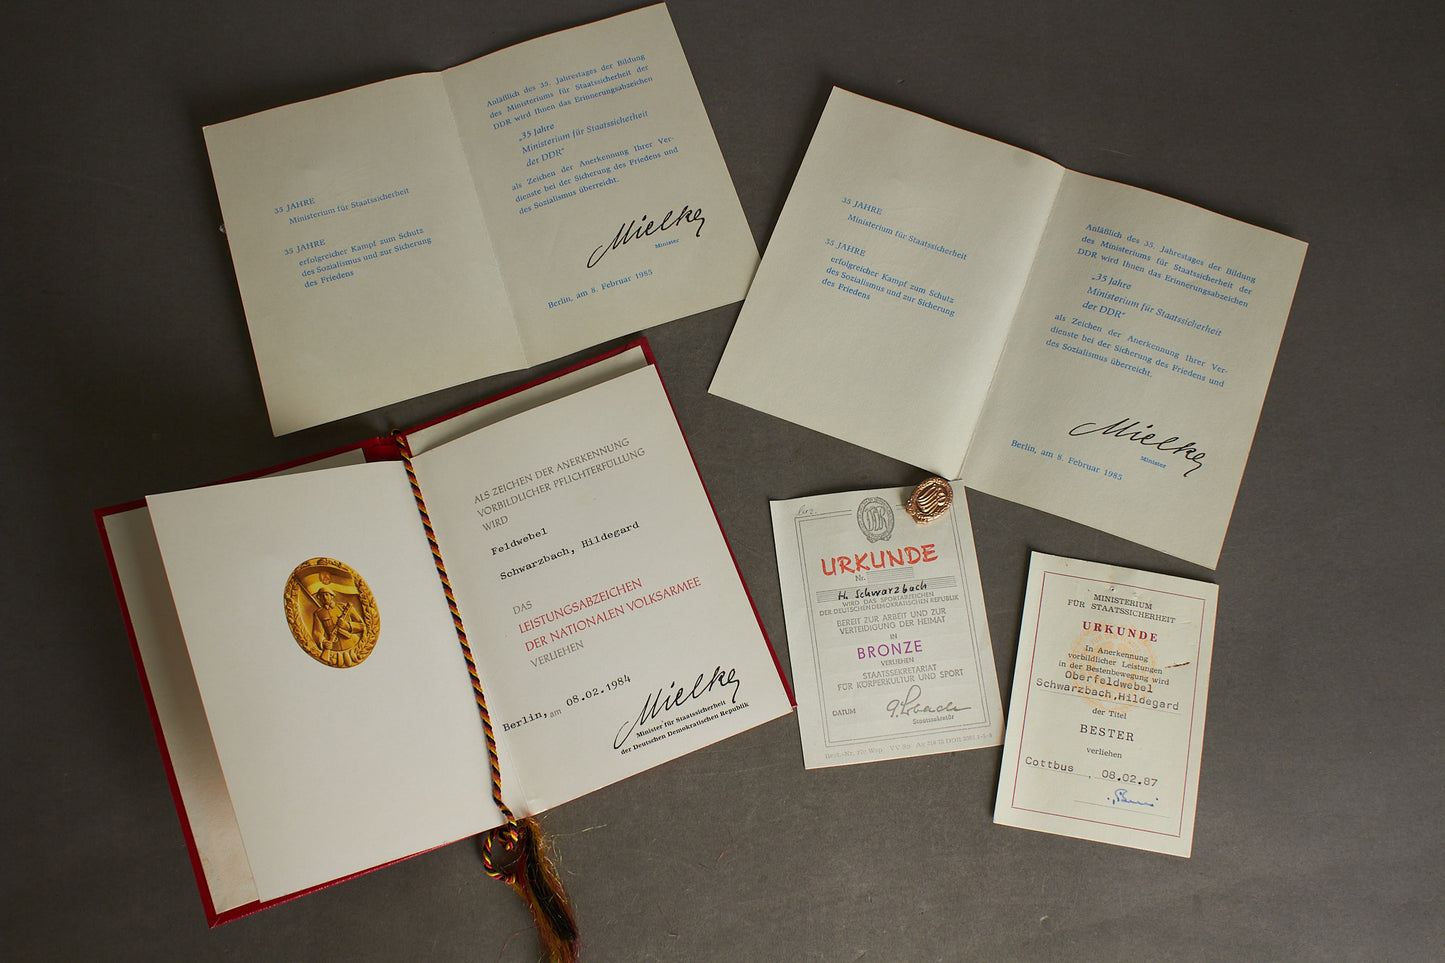 35 JAHRE
Ministerium für Staatssicherheit
35 JAHRE
erfolgreicher Kampf zum Schutz
des Sozialismus und zur Sicherung
des Friedens
Anläßlich des 35. Jahrestages der Bildung
des Ministeriums für Staatssicherheit der
DDR wird Ihnen das Erinnerungsabzeichen
„35 Jahre
Ministerium für Staatssicherheit
der DDR“
als Zeichen der Anerkennung Ihrer Ver-
dienste bei der Sicherung des Friedens und
des Sozialismus überreicht.
Mielke
Minister
Berlin, am 8. Februar 1985
35 JAHRE
Ministerium für Staatssicherheit
35 JAHRE
erfolgreicher Kampf zum Schutz
des Sozialismus und zur Sicherung
des Friedens
Anläßlich des 35. Jahrestages der Bildung
des Ministeriums für Staatssicherheit der
DDR wird Ihnen das Erinnerungsabzeichen
„35 Jahre
Ministerium für Staatssicherheit
der DDR“
als Zeichen der Anerkennung Ihrer Ver-
dienste bei der Sicherung des Friedens und
des Sozialismus überreicht.
Mielke
Minister
Berlin, am 8. Februar 1985
ALS ZEICHEN DER ANERKENNUNG
VORBILDLICHER PFLICHTERFÜLLUNG
WIRD
Feldwebel
Schwarzbach, Hildegard
DAS
LEISTUNGSABZEICHEN
DER NATIONALEN VOLKSARMEE
VERLIEHEN
Berlin, am 08.02.1984
Mielke
Minister für Staatssicherheit
der Deutschen Demokratischen Republik
URKUNDE
Nr.
H. Schwarzbach
WIRD DAS SPORTABZEICHEN
DER DEUTSCHEN DEMOKRATISCHEN REPUBLIK
BEREIT ZUR ARBEIT UND ZUR
VERTEIDIGUNG DER HEIMAT
IN
BRONZE
VERLIEHEN
STAATSSEKRETARIAT
FÜR KÖRPERKULTUR UND SPORT
DATUM
Staatssekretär
MINISTERIUM
FÜR STAATSSICHERHEIT
URKUNDE
In Anerkennung
vorbildlicher Leistungen
in der Bestenbewegung wird
Oberfeldwebel
Schwarzbach,Hildegard
der Titel
BESTER
verliehen
Cottbus, 08.02.87